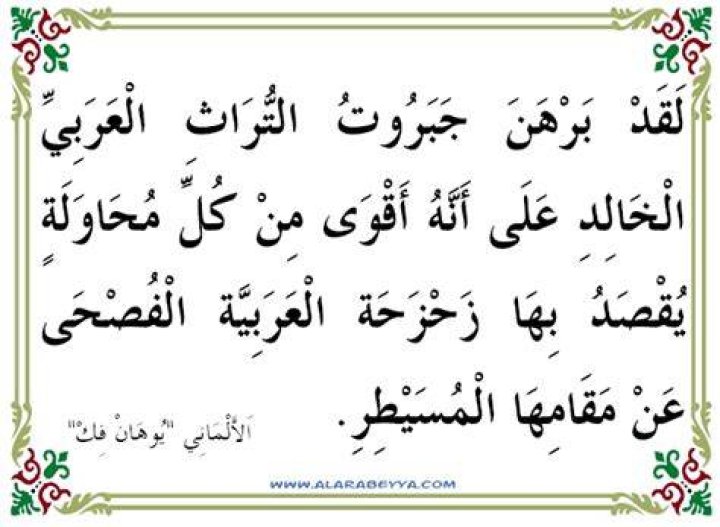 لَقَدْ بَرْهَنَ جَبَرُوتُ التُّرَاثِ الْعَرَبِيِّ
الْخَالِدِ عَلَى أَنَّهُ أَقْوَى مِنْ كُلِّ مُحَاوَلَةٍ
يُقْصَدُ بِهَا زَحْزَحَة الْعَرَبِيَّة الْفُصْحَى
عَنْ مَقَامِهَا الْمُسَيْطِرِ.
اَلأَلْمَانِي "يُوهَانْ فِكْ"
WWW.ALARABEYYA.COM